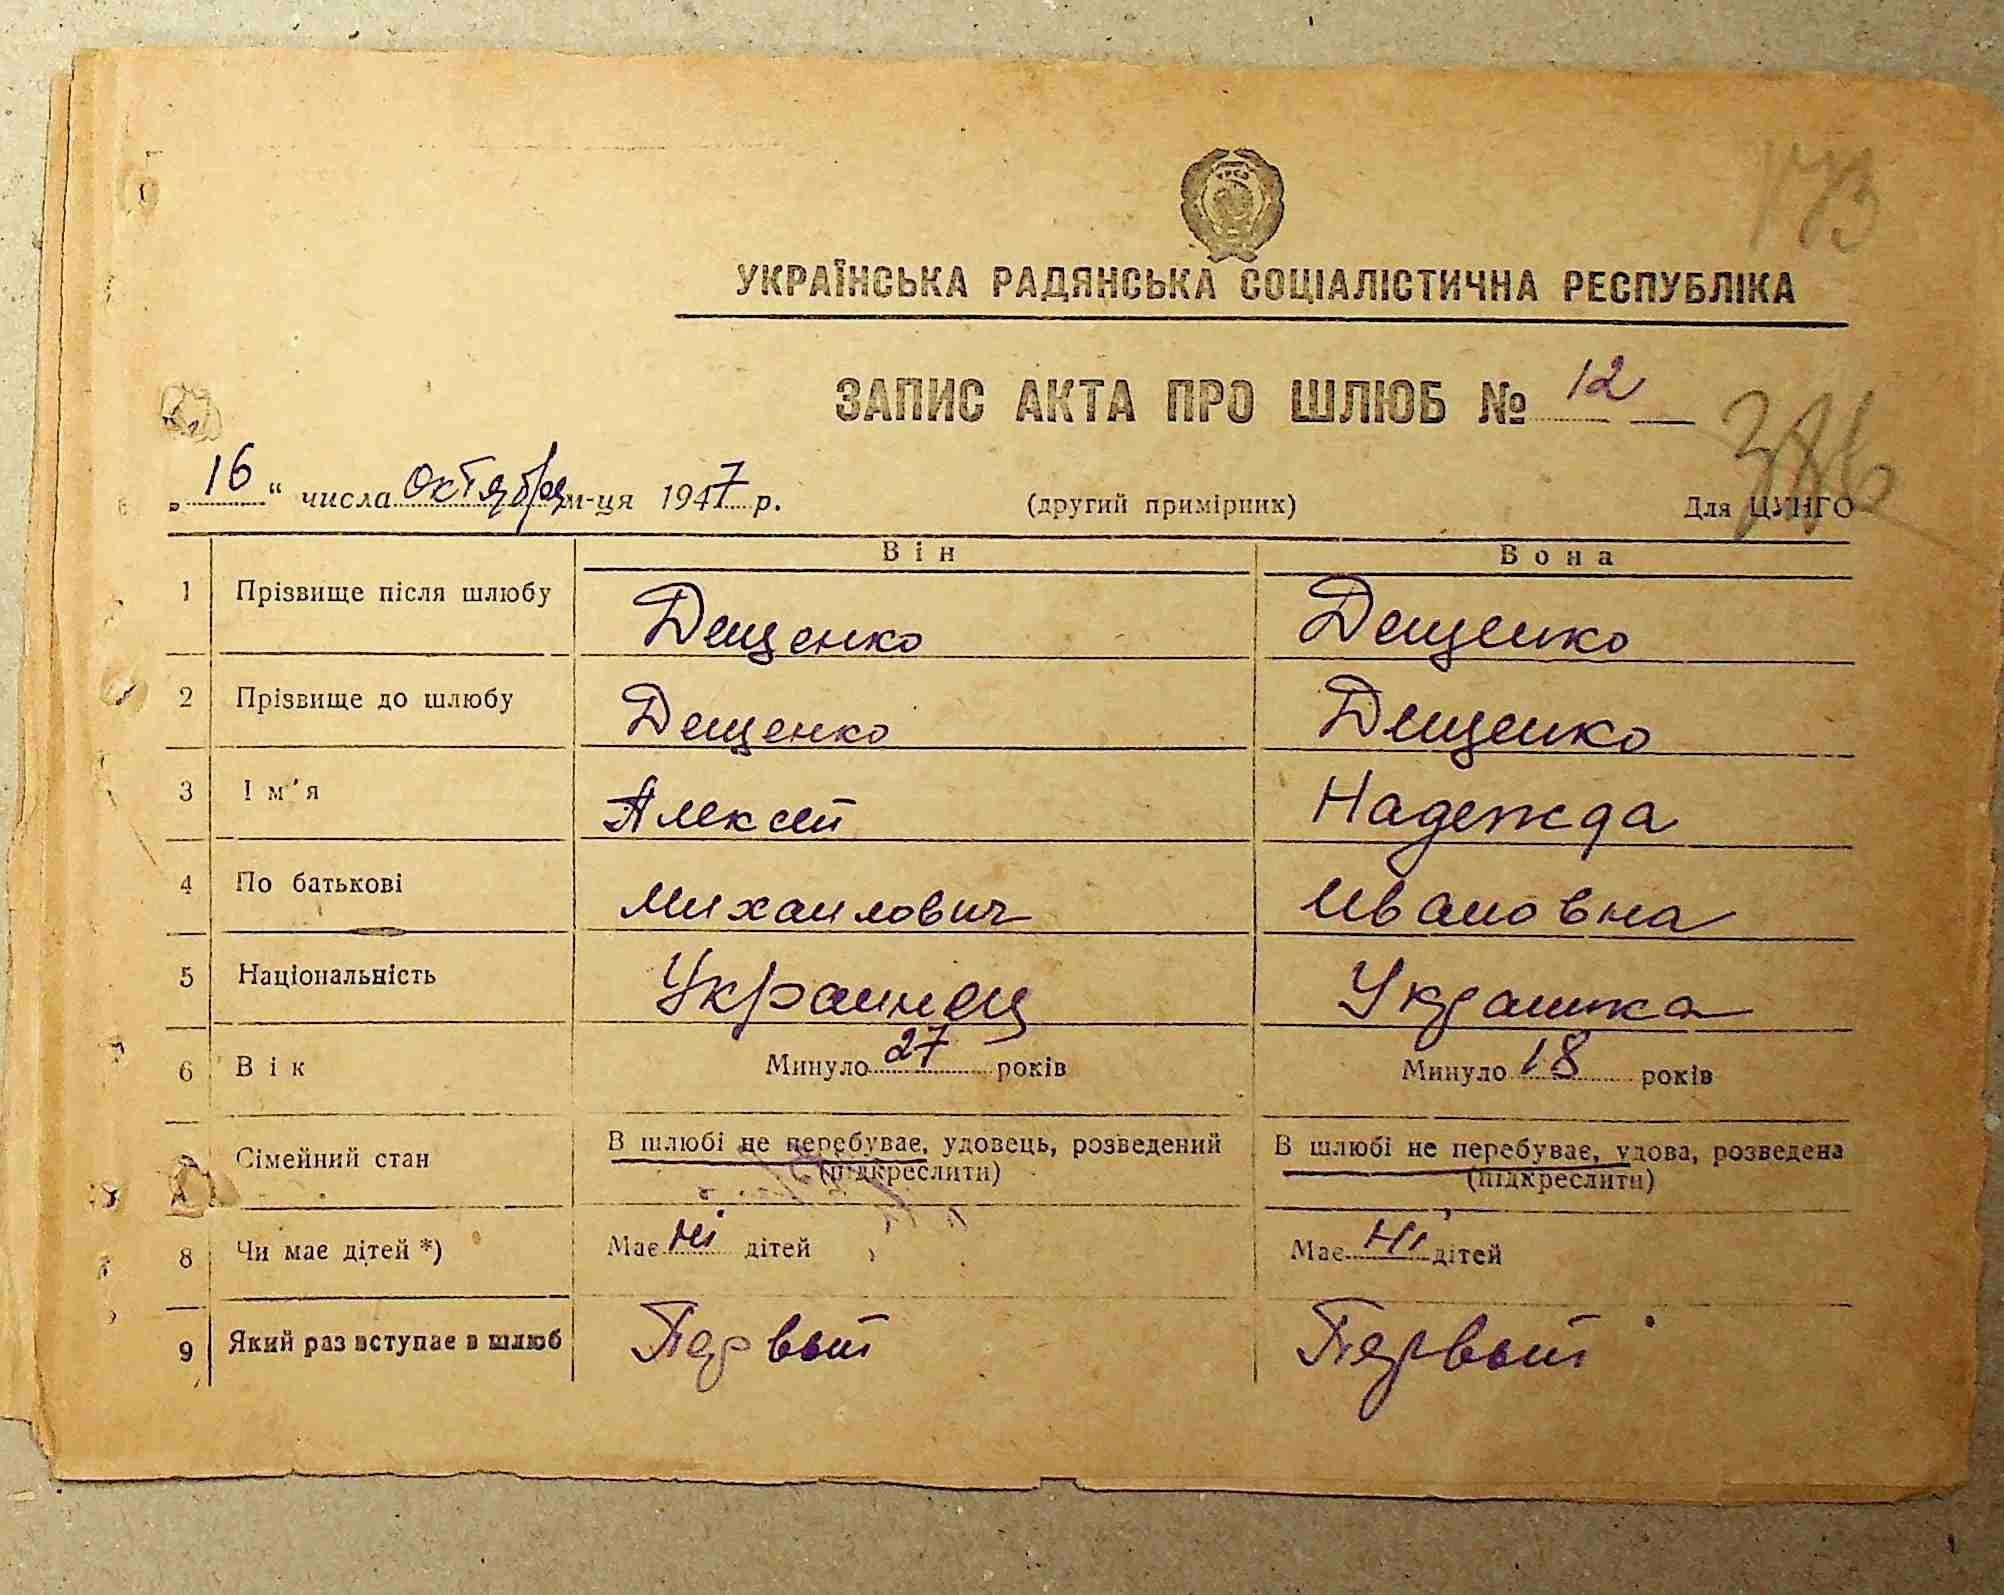 173
УКРАЇНСЬКА РАДЯНСЬКА СОЦІАЛІСТИЧНА РЕСПУБЛІКА
ЗАПИС АКТА ПРО ШЛЮБ № 12
„16“ числа октября м-ця 1947 р. (другий примірник) Для ЦУНГО
Він Вона
1 Прізвище після шлюбу Дещенко Дещенко
2 Прізвище до шлюбу Дещенко Дещенко
3 Ім'я Алексей Надежда
4 По батькові Михаилович Ивановна
5 Національність Украинец Украинка
6 Вік Минуло 27 років Минуло 18 років
Сімейний стан В шлюбі не перебуває, удовець, розведений В шлюбі не перебуває, удова, розведена
(підкреслити) (підкреслити)
8 Чи має дітей *) Має ні дітей Має ні дітей
9 Який раз вступає в шлюб Первый Первый